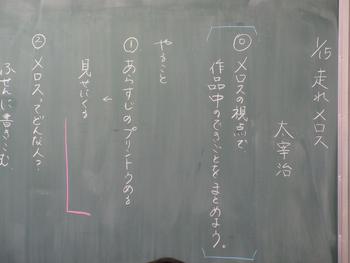 1/15 走れメロス
太宰治
◎ メロスの視点で、
作品中のできごとをまとめよう。
やること
① あらすじのプリントうめる
↓
見せにくる
② メロスってどんな人?
ふせんに書きこむ